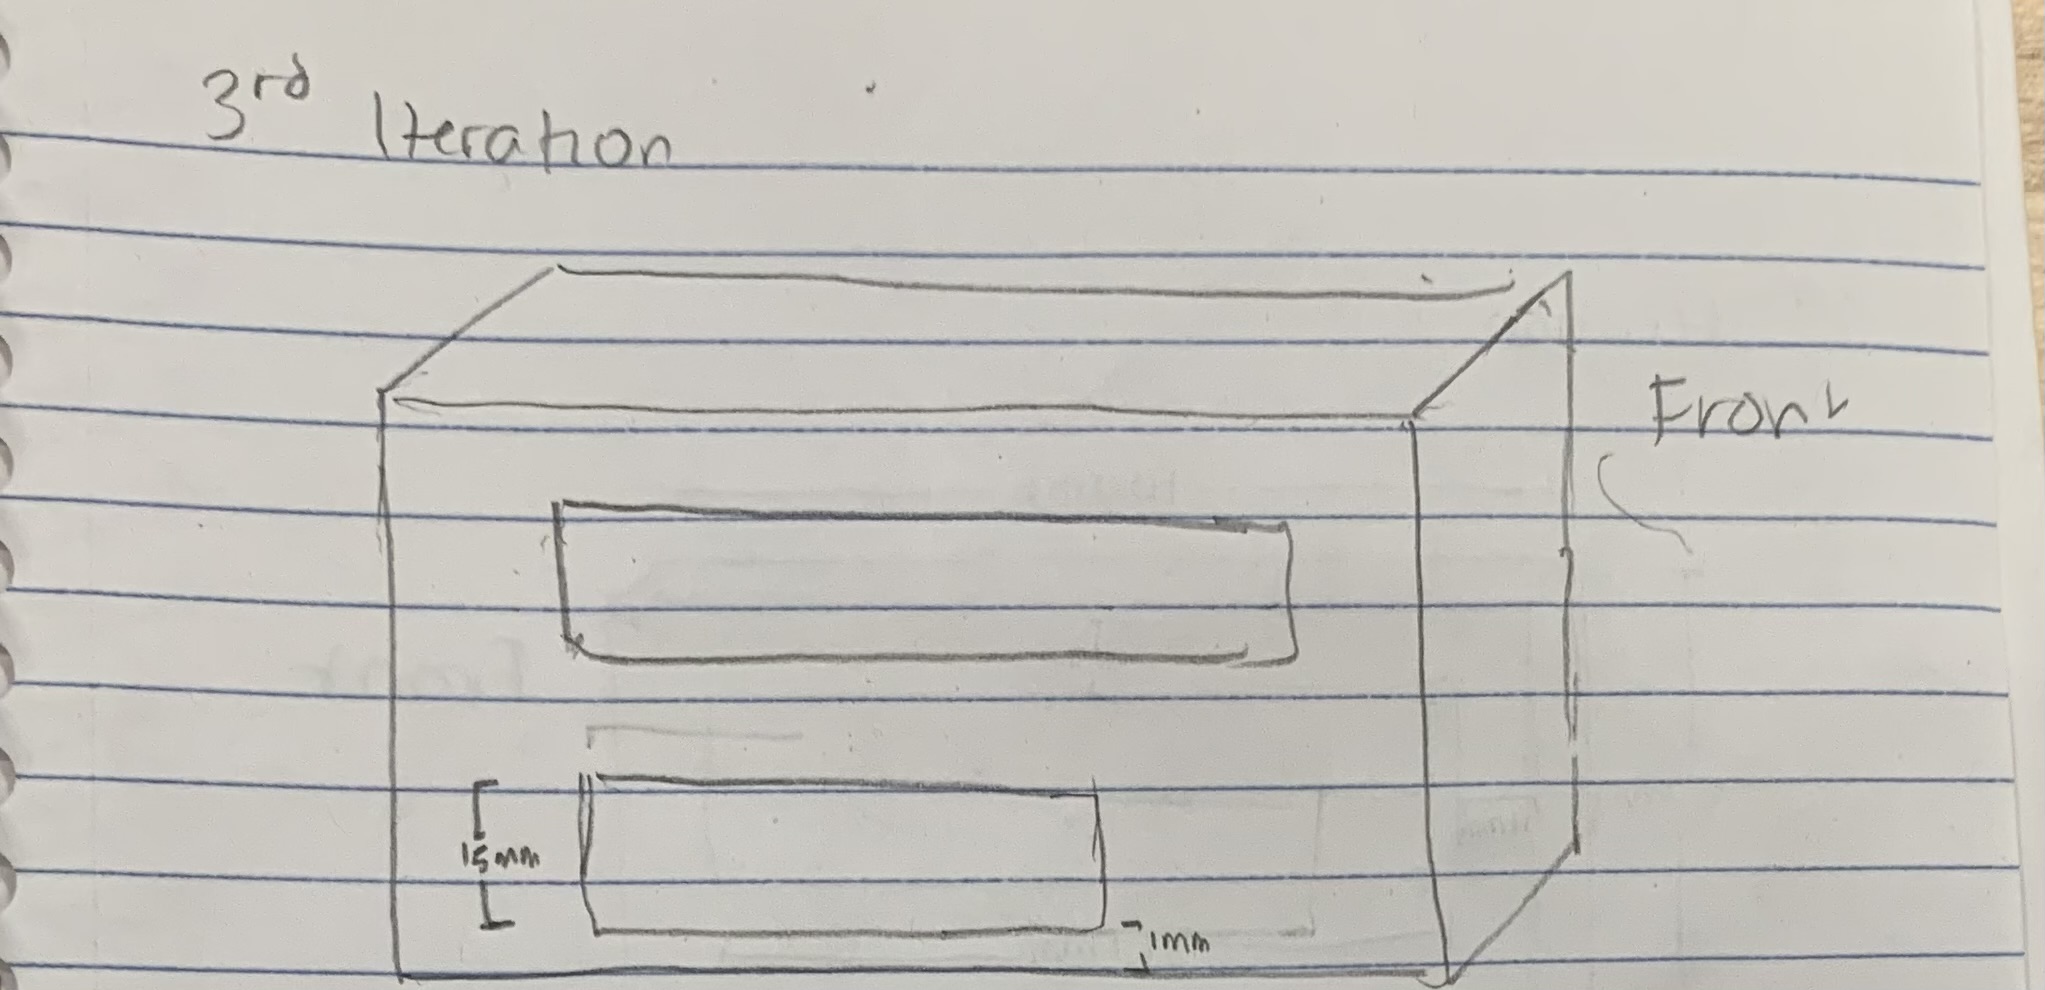 3rd Iteration
Front
15mm
1mm